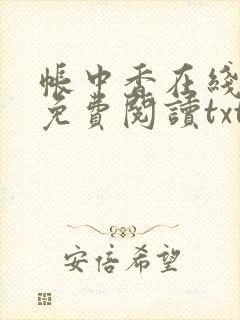 帳中香在綫
免費閱讀txt
安倍希望